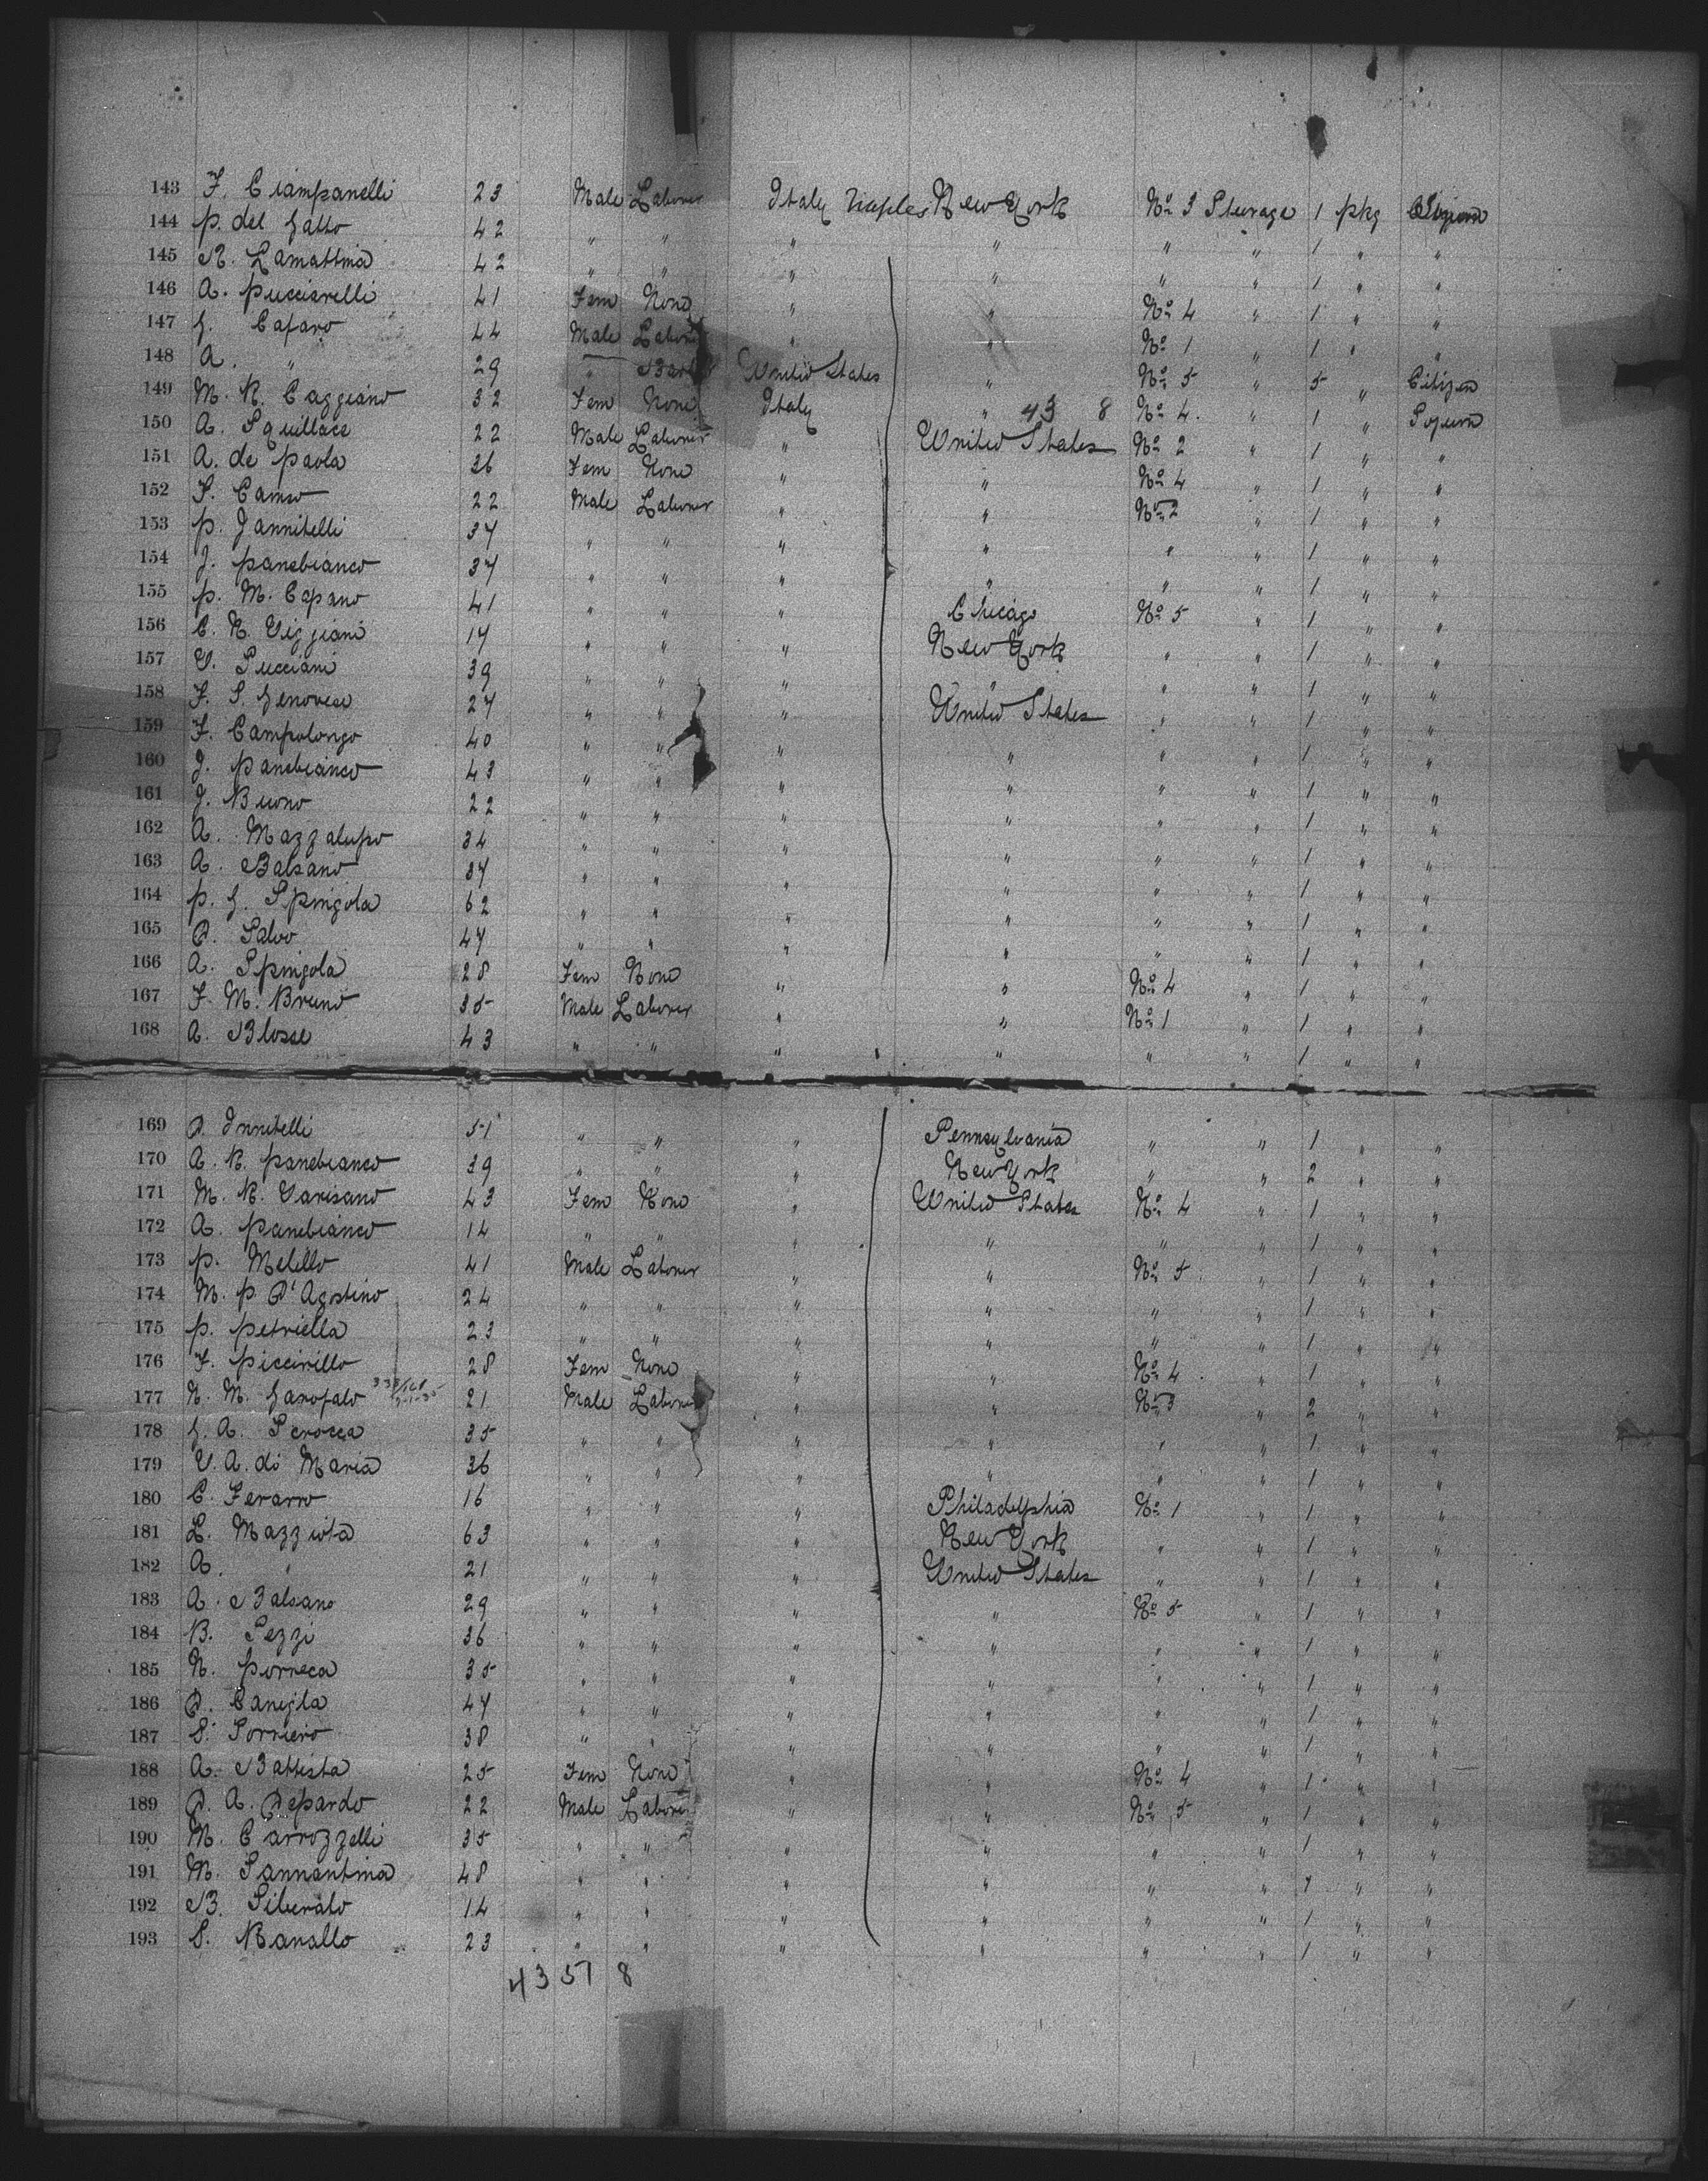 143 F. Ciampanelli 23 Male Laborer Italy Naples New York No 3 Steerage 1 pkg
144 P. del Gatto 42 " " " " " " 1 " "
145 R. Lamattina 42 " " " " " " 1 " "
146 A. Pucciarelli 41 Fem None " " No 4 " 1 " "
147 G. Cafaro 44 Male Laborer " " No 1 " 1 " "
148 A. " 29 " United States " No 5 " 5 " Citizen
149 M. R. Caggiano 32 Fem None Italy " 43 8 No 4 " 1 "
150 A. Squillace 22 Male Laborer " United States No 2 " 1 " "
151 A. de Paola 36 Fem None " " No 4 " 1 " "
152 S. 22 Male Laborer " " No 2 " 1 " "
153 P. Jannitelli 37 " " " " " " 1 " "
154 J. Panebianco 37 " " " " " " 1 " "
155 P. M. Capano 41 " " " Chicago No 5 " 1 " "
156 C. R. Viggiani 17 " " " New York " " 1 " "
157 V. Pucciani 39 " " " " " " 1 " "
158 F. S. Genovese 27 " " " United States " " 1 " "
159 F. Campolongo 40 " " " " " " 1 " "
160 J. Panebianco 43 " " " " " " 1 " "
161 J. Buono 22 " " " " " " 1 " "
162 A. Mazzalupo 34 " " " " " " 1 " "
163 A. Balsano 37 " " " " " " 1 " "
164 P. G. Spingola 62 " " " " " " 1 " "
165 D. Salvo 47 " " " " " " 1 " "
166 A. Spingola 28 Fem None " " No 4 " 1 " "
167 F. M. Bruno 35 Male Laborer " " No 1 " 1 " "
168 A. Blosse 43 " " " " " " 1 " "
169 D. Innitelli 51 " " " Pennsylvania " " 1 " "
170 A. R. Panebianco 39 " " " New York " " 2 " "
171 M. R. Varisano 43 Fem None " United States No 4 " 1 " "
172 A. Panebianco 14 " " " " " " 1 " "
173 P. Melillo 41 Male Laborer " " No 5 " 1 " "
174 M. P. D'Agostino 24 " " " " " " 1 " "
175 P. Petriella 23 " " " " " " 1 " "
176 F. Piccirillo 28 Fem None " " No 4 " 1 " "
177 N. M. Garofalo 21 Male Laborer " " No 3 " 2 " "
178 G. A. Scrocca 35 " " " " " " 1 " "
179 V. A. di Maria 36 " " " " " " 1 " "
180 C. Ferarro 16 " " " Philadelphia No 1 " 1 " "
181 L. Mazziota 63 " " " New York " " 1 " "
182 A. " 21 " " " United States " " 1 " "
183 A. Balsano 29 " " " " No 5 " 1 " "
184 B. Pezzi 36 " " " " " " 1 " "
185 N. Porreca 35 " " " " " " 1 " "
186 D. Caniglia 47 " " " " " " 1 " "
187 S. Sorriero 38 " " " " " " 1 " "
188 A. Battista 25 Fem None " " No 4 " 1 " "
189 D. A. Depardo 22 Male Laborer " " No 5 " 1 " "
190 M. Carrozzelli 35 " " " " " " 1 " "
191 M. Sannantina 48 " " " " " " 1 " "
192 B. Liberato 14 " " " " " " 1 " "
193 S. Ranallo 23 " " " " " " 1 " "
43 57 8